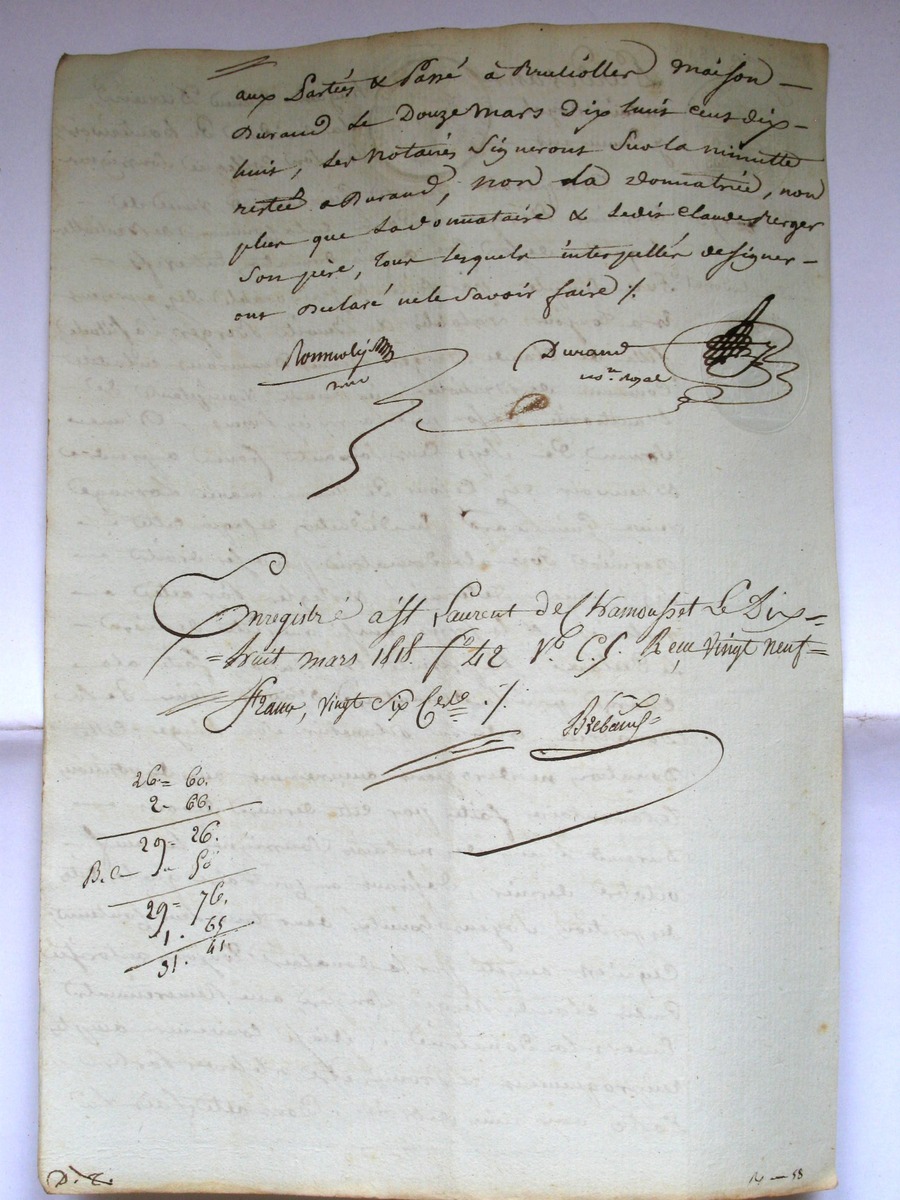 aux parties & Passé à Brulioller maison
Durand Le Douze mars Dix huit cent dix-
huit, Les Notaires Signeront Sur la minutte
restée a Durand, non la donnatrice, non
plus que La donnataire & Ledit Claude Berger
Son pere, tous lesquels interpellés de signer
ont Declaré ne le Savoir faire ./.
Durand
no.re Royal
Enregistré à St Laurent de Chamousset Le Dix-
=huit mars 1818. f° 42 V.° C. 5. Reçu vingt neuf=
francs, vingt Six Cmes ./.
26= 60.
2- 66.
29= 26.
50
29= 76.
1. 65
31. 41
D. Z.